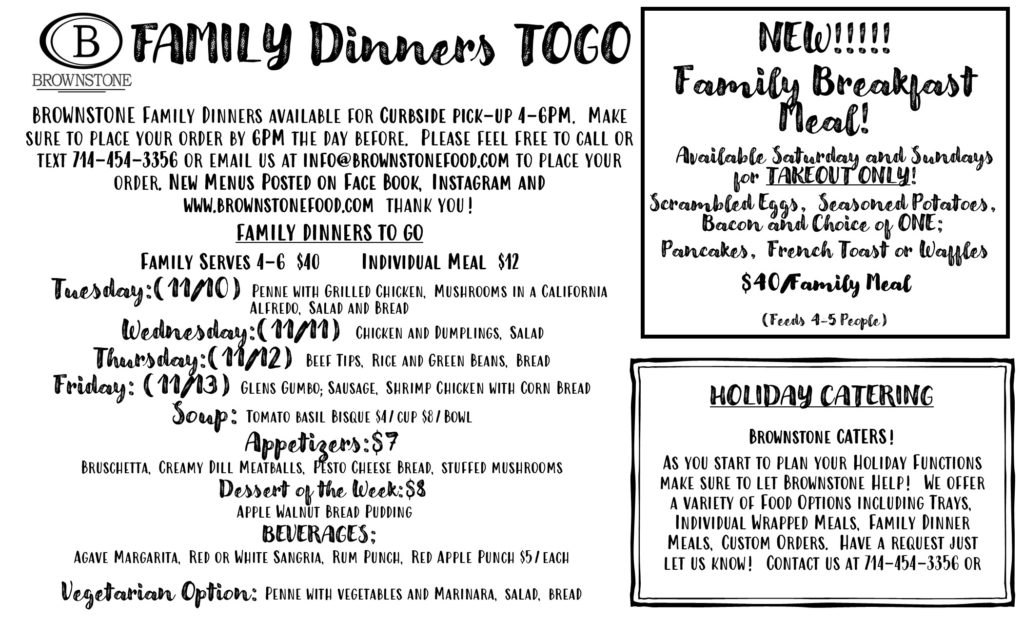 B
BROWNSTONE
FAMILY Dinners TOGO
BROWNSTONE FAMILY DINNERS AVAILABLE FOR CURBSIDE PICK-UP 4-6PM. MAKE
SURE TO PLACE YOUR ORDER BY 6PM THE DAY BEFORE. PLEASE FEEL FREE TO CALL OR
TEXT 714-454-3356 OR EMAIL US AT INFO@BROWNSTONEFOOD.COM TO PLACE YOUR
ORDER. NEW MENUS POSTED ON FACE BOOK, INSTAGRAM AND
WWW.BROWNSTONEFOOD.COM THANK YOU!
FAMILY DINNERS TO GO
FAMILY SERVES 4-6 $40 INDIVIDUAL MEAL $12
Tuesday:(11/10) PENNE WITH GRILLED CHICKEN, MUSHROOMS IN A CALIFORNIA
ALFREDO, SALAD AND BREAD
Wednesday:(11/11) CHICKEN AND DUMPLINGS, SALAD
Thursday:(11/12) BEEF TIPS, RICE AND GREEN BEANS, BREAD
Friday: (11/13) GLENS GUMBO; SAUSAGE, SHRIMP CHICKEN WITH CORN BREAD
Soup: TOMATO BASIL BISQUE $4/CUP $8/BOWL
Appetizers:$7
BRUSCHETTA, CREAMY DILL MEATBALLS, PESTO CHEESE BREAD, STUFFED MUSHROOMS
Dessert of the Week:$8
APPLE WALNUT BREAD PUDDING
BEVERAGES;
AGAVE MARGARITA, RED OR WHITE SANGRIA, RUM PUNCH, RED APPLE PUNCH $5/EACH
Vegetarian Option: PENNE WITH VEGETABLES AND MARINARA, SALAD, BREAD
NEW!!!!!
Family Breakfast
Meal!
Available Saturday and Sundays
for TAKEOUT ONLY!
Scrambled Eggs, Seasoned Potatoes,
Bacon and Choice of ONE;
Pancakes, French Toast or Waffles
$40/Family Meal
(Feeds 4-5 People)
HOLIDAY CATERING
BROWNSTONE CATERS!
AS YOU START TO PLAN YOUR HOLIDAY FUNCTIONS
MAKE SURE TO LET BROWNSTONE HELP! WE OFFER
A VARIETY OF FOOD OPTIONS INCLUDING TRAYS,
INDIVIDUAL WRAPPED MEALS, FAMILY DINNER
MEALS, CUSTOM ORDERS. HAVE A REQUEST JUST
LET US KNOW! CONTACT US AT 714-454-3356 OR